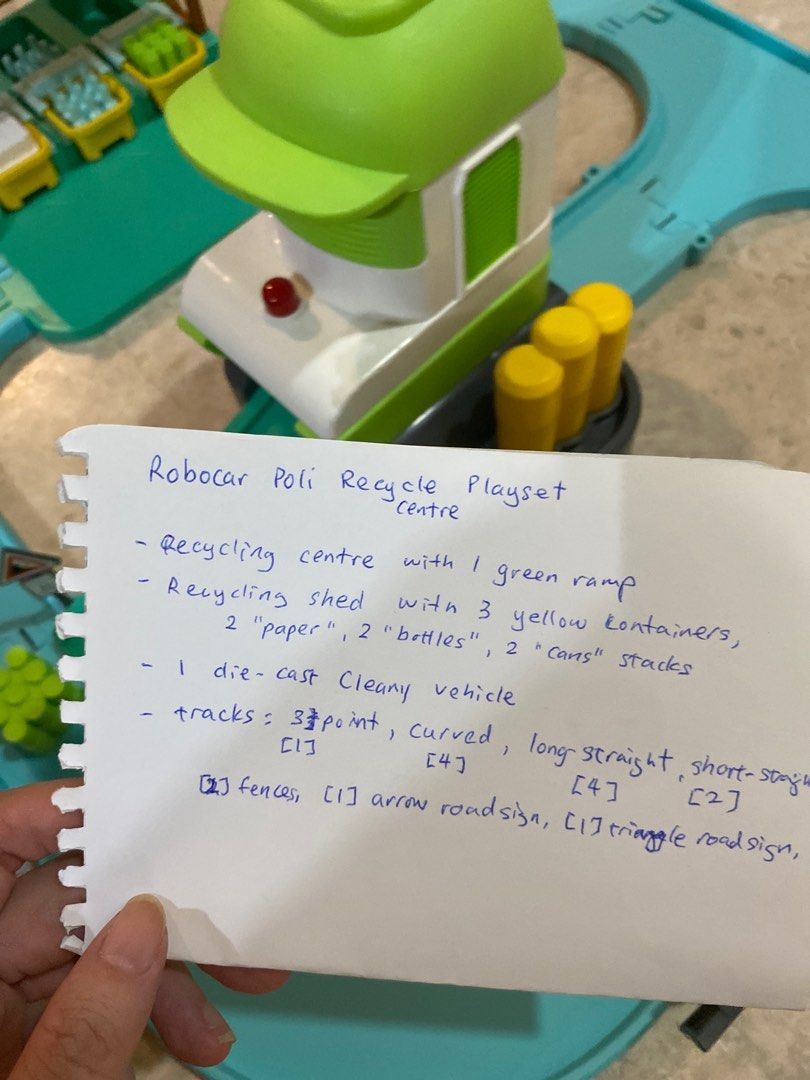 Robocar Poli Recycle Playset
centre
- Recycling centre with 1 green ramp
- Recycling shed with 3 yellow kontainers,
2 "paper", 2 "bottles", 2 "cans" stacks
- 1 die-cast Cleany vehicle
- tracks: 3 point, curved, long-straight, short-staigh
[1] [4] [4] [2]
[2] fences, [1] arrow roadsign, [1] triangle roadsign,